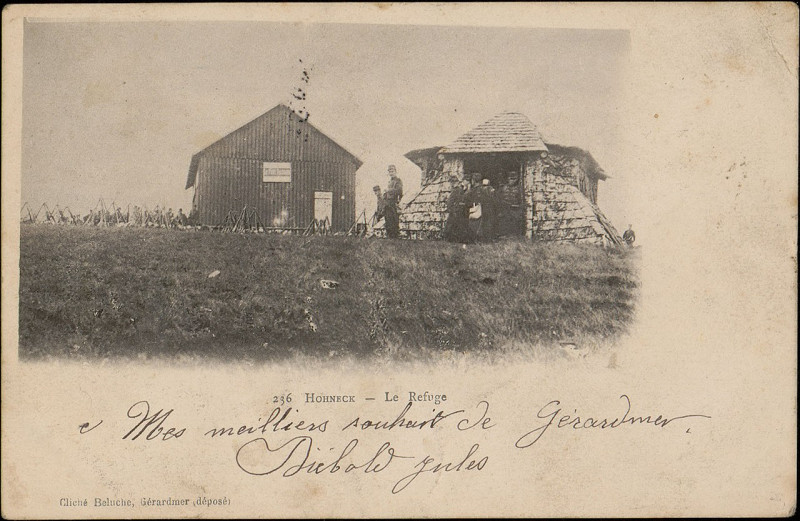 236 HOHNECK — LE REFUGE
Mes meilliers souhait de Gérardmer.
Diébold jules
Cliché Beluche, Gérardmer (déposé)